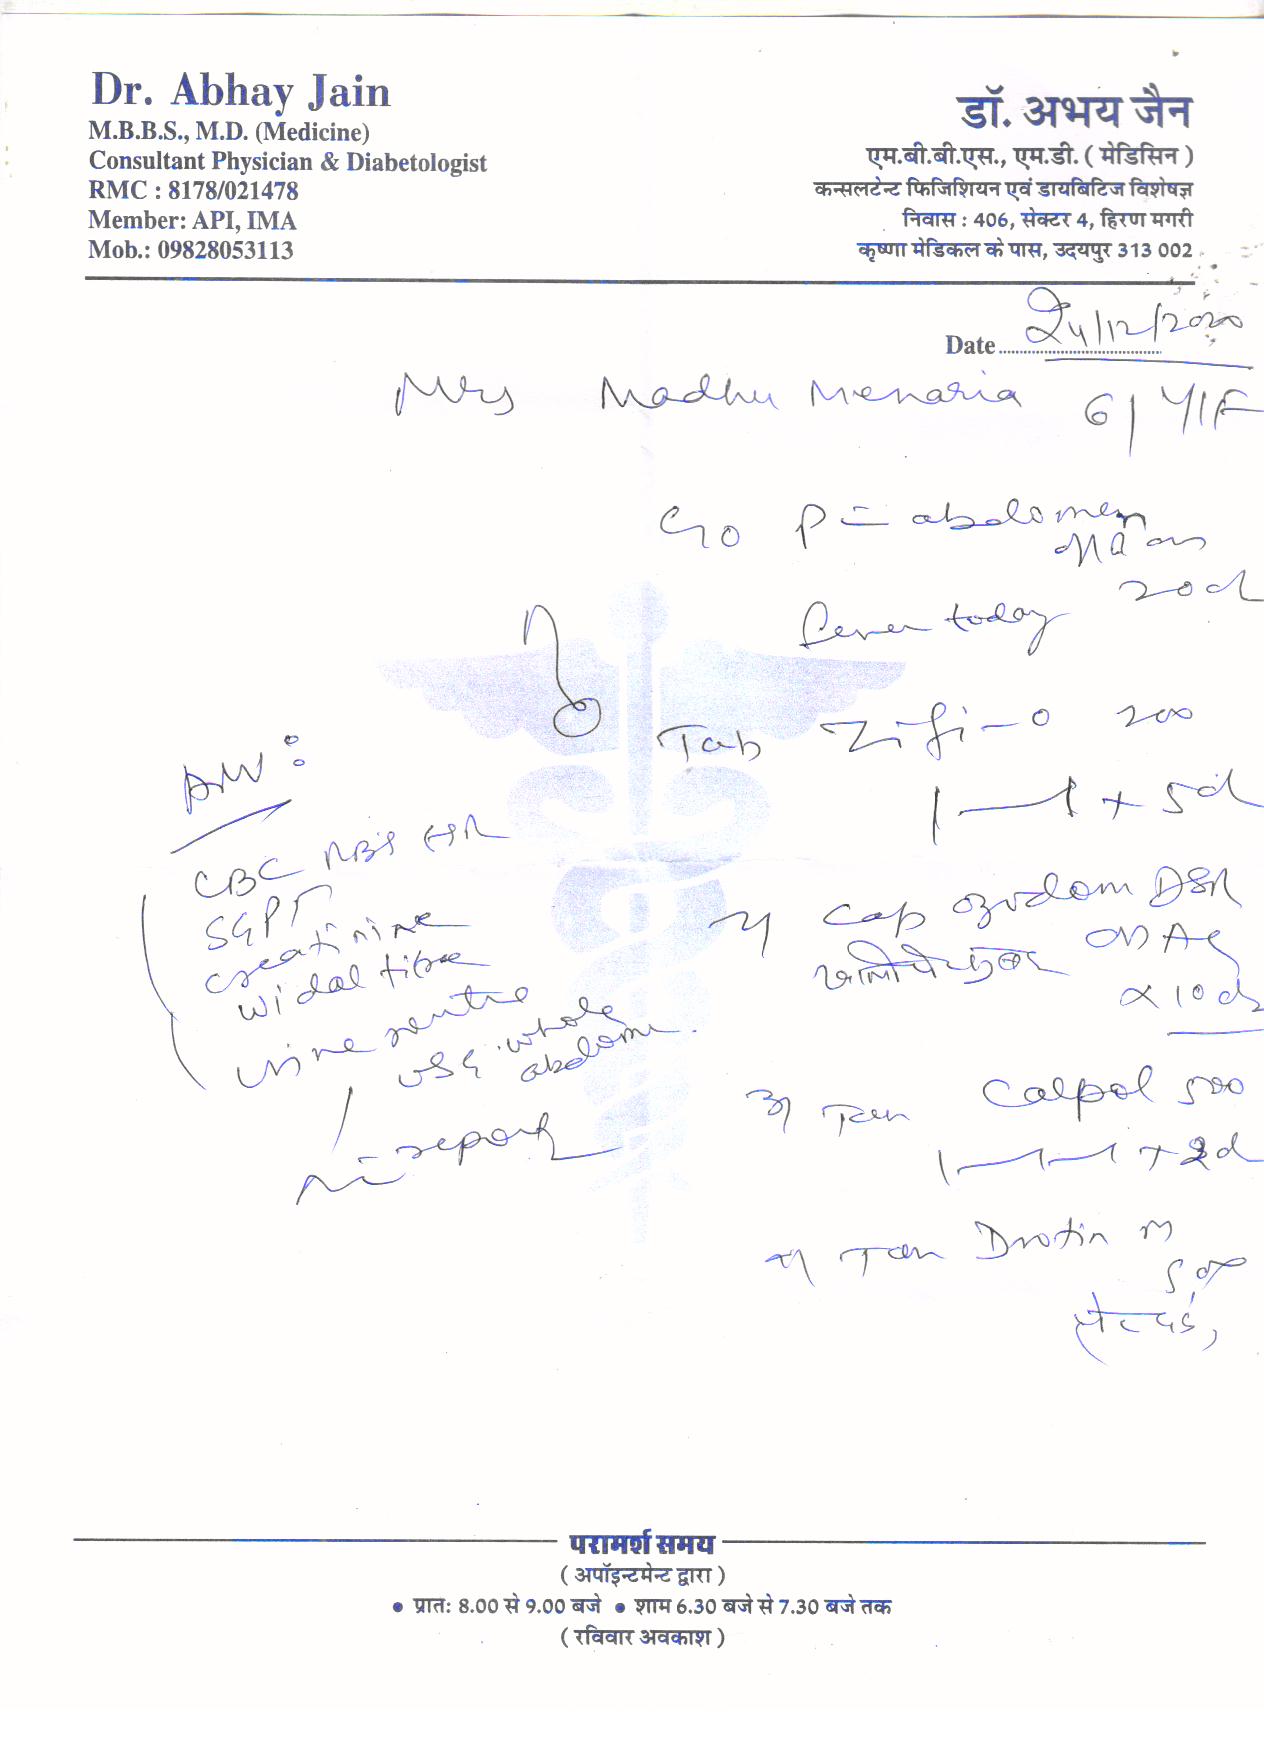 Dr. Abhay Jain
M.B.B.S., M.D. (Medicine)
Consultant Physician & Diabetologist
RMC : 8178/021478
Member: API, IMA
Mob.: 09828053113
डॉ. अभय जैन
एम.बी.बी.एस., एम.डी. ( मेडिसिन )
कन्सलटेन्ट फिजिशियन एवं डायबिटिज विशेषज्ञ
निवास : 406, सेक्टर 4, हिरण मगरी
कृष्णा मेडिकल के पास, उदयपुर 313 002
Date 24/12/2020
Mrs Madhu Menaria 61 Y/F
C/o P abdomen
20 d
Fever today
Tab Zifi-O 200
1—1 + 5d
2) Cap ozvdom DSR
OD AC
खाली पेट
x 10 d
3) Tab Calpol 500
1—1—1 + 2d
4) Tab Drotin M
SOS
Adv:
CBC RBS ESR
SGPT
creatinine
widal titre
urine routine
USG whole
abdomen
R report
परामर्श समय
( अपॉइन्टमेन्ट द्वारा )
• प्रात: 8.00 से 9.00 बजे • शाम 6.30 बजे से 7.30 बजे तक
( रविवार अवकाश )